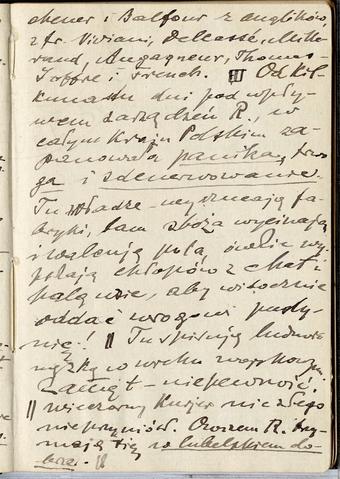 chener i Balfour z anglików,
z fr. Viviani, Delcassé, Mille-
rand, Augagneur, Thomas
Joffre i French. Od kil-
kunastu dni pod wpły-
wem zarządzeń R., w
całym Kraju Polskim za-
panowała panika, trwo-
ga i zdenerwowanie.
Tu władze wyrzucają fa-
bryki, tam zboża wycinają
i walcują pola, ówdzie wy-
pędzają chłopów z chat i
palą wsie, aby widocznie
oddać wrogowi pusty-
nię! || Tu spisują ludność
męzką w wieku wojskowym
Zamęt – niepewność.
|| wieczorny Kurjer nic złego
nie przyniósł. Owszem R. trzy-
mają się w lubelskiem do-
brze. ||